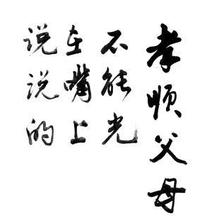 孝顺父母
不能光
在嘴上
说说的